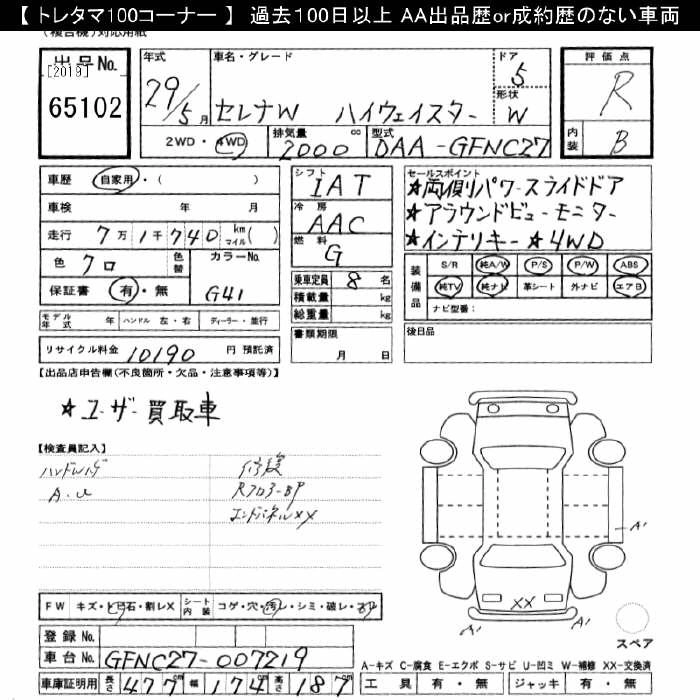 【トレタマ100コーナー】 過去100日以上 AA出品歴or成約歴のない車両
出品No.
[2019]
65102
年式
29/5月
車名・グレード
セレナW ハイウェイスター
ドア
5
形状
W
評価点
R
内装
B
2WD・4WD
排気量
2000
cc
型式
DAA-GFNC27
車歴
自家用・( )
車検 年 月
走行 7万1千740 km マイル( )
色 クロ
色替
カラーNo.
G41
保証書 有・無
シフト
IAT
冷房
AAC
燃料
G
乗車定員 8 名
積載量 kg
総重量 kg
セールスポイント
★両側パワースライドドア
★アラウンドビューモニター
★インテリキー ★4WD
装備品
S/R 純A/W P/S P/W ABS
純TV 純ナビ 革シート 外ナビ エアB
ナビ型番:
モデル年式 年 ハンドル 左・右 ディーラー・並行
リサイクル料金 10190 円 預託済
書類期限
月 日
後日品
【出品店申告欄(不良箇所・欠品・注意事項等)】
★ユーザー買取車
【検査員記入】
A.U
修復
エンドパネルXX
A'
XX
A'
A'
スペア
FW キズ・トビ石・割レX シート内装 コゲ・穴・汚レ・シミ・破レ・スレ
登録No.
車台No. GFNC27-007219
車庫証明用 長さ 477 cm 幅 174 cm 高さ 187 cm
A-キズ C-腐食 E-エクボ S-サビ U-凹ミ W-補修 XX-交換済
工具 有・無 ジャッキ 有・無